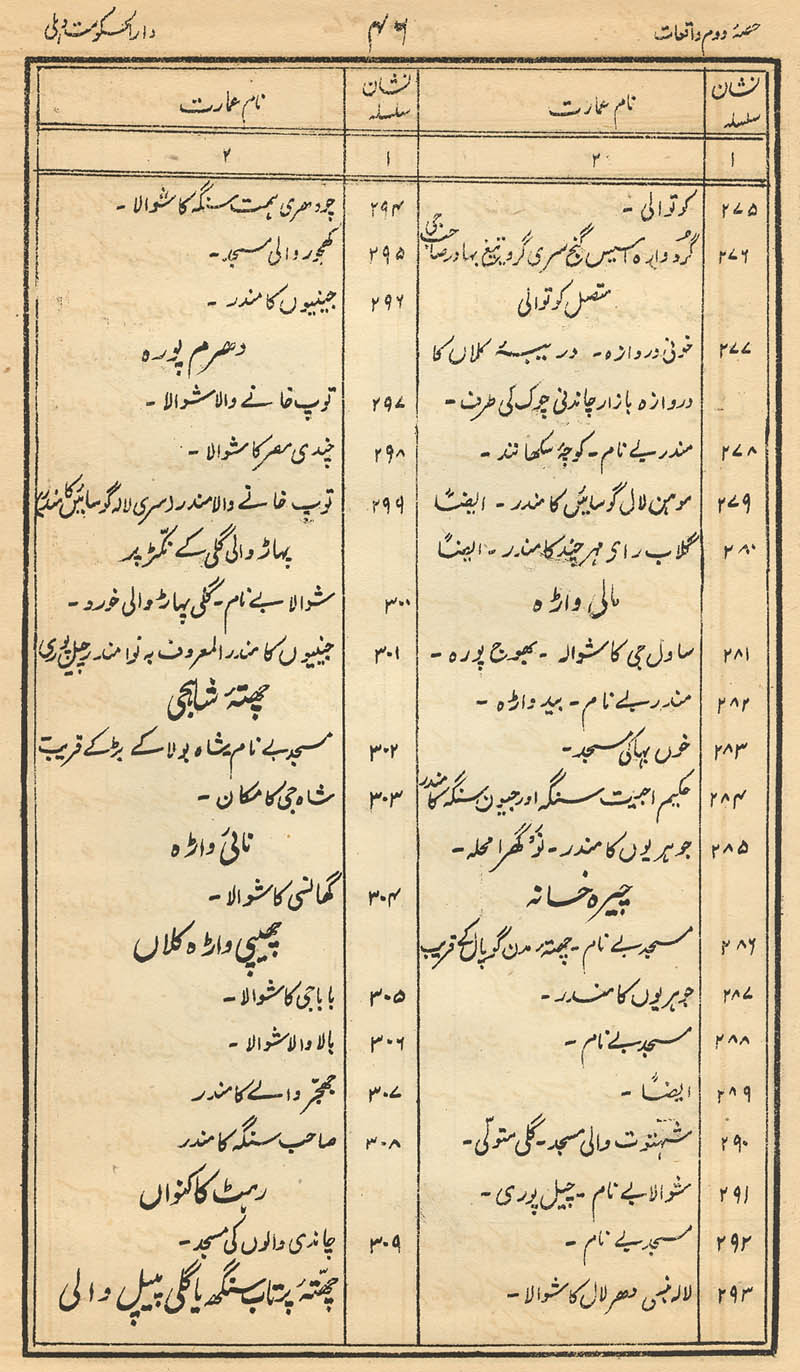 حصۂ دوم واقعات
۴۶
دارالحکومت دہلی
نشان سلسلہ
نام عمارت
۱
۲
۲۷۵ کوتوالی ۔
۲۷۶ گرُدوارہ اسیس گنج سری گرو تیغ بہادر صاحب جی
متصل کوتوالی
۲۷۷ خونی دروازہ ۔ دریبۂ کلاں کا
دروازہ بازار چاندنی چوک کی طرف ۔
۲۷۸ مندر بے نام ۔ کوچۂ سکھانند ۔
۲۷۹ موہن لال گوسائیں کا مندر ۔ ایضاً
۲۸۰ گلاب رای مہرچند کا مندر ۔ ایضاً
مالی واڑہ
۲۸۱ ساول جی کا شوالہ ۔ بھوج پورہ ۔
۲۸۲ مندر بے نام ۔ بید واڑہ ۔
۲۸۳ خوں بہا کی مسجد ۔
۲۸۴ حکیم اجیت سنگہ اور جیون سنگہ کا مندر
۲۸۵ جوہریوں کا مندر ۔ نَوْ گھرا محلہ ۔
چیرہ خانہ
۲۸۶ مسجد بے نام ۔ چھتۂ مدن گوپال کے قریب
۲۸۷ جوہریوں کا مندر ۔
۲۸۸ مسجد بے نام ۔
۲۸۹ ایضاً ۔
۲۹۰ شہتوت والی مسجد ۔ گلی متولّی ۔
۲۹۱ شوالا بے نام ۔ چیل پوری ۔
۲۹۲ مسجد بے نام ۔
۲۹۳ لالہ بنسی دھر لال کا شوالا ۔
نشان سلسلہ
نام عمارت
۱
۲
۲۹۴ چودھری ہمت سنگہ کا شوالا ۔
۲۹۵ کھجور والی مسجد ۔
۲۹۶ جینیوں کا مندر ۔
دھرم پورہ
۲۹۷ توپ خانے والا شوالا ۔
۲۹۸ چندی مصر کا شوالا ۔
۲۹۹ توپ خانے والا مندر (سری لالہ گوسائیں کا مندر)
پہاڑ والی گلی کے نکّڑ پر
۳۰۰ شوالا بے نام ۔ گلی پہاڑ والی خورد ۔
۳۰۱ جینیوں کا مندر المعروف بہ نوا مندر چیل پوری
چھتۂ شاہجی
۳۰۲ مسجد بے نام شاہ بولا کے بڑ کے قریب
۳۰۳ شاہ جی کا مکان ۔
نائی واڑہ
۳۰۴ گھانسی کا شوالا ۔
چھیپی واڑہ کلاں
۳۰۵ باباجی کا شوالا ۔
۳۰۶ بالا والا شوالا ۔
۳۰۷ جھجّر والے کا مندر
۳۰۸ صاحب سنگہ کا مندر
رہٹ کا کنواں
۳۰۹ چاندی والوں کی مسجد ۔
چھتّۂ پرتاب سنگھ یا گلی پیپل والی